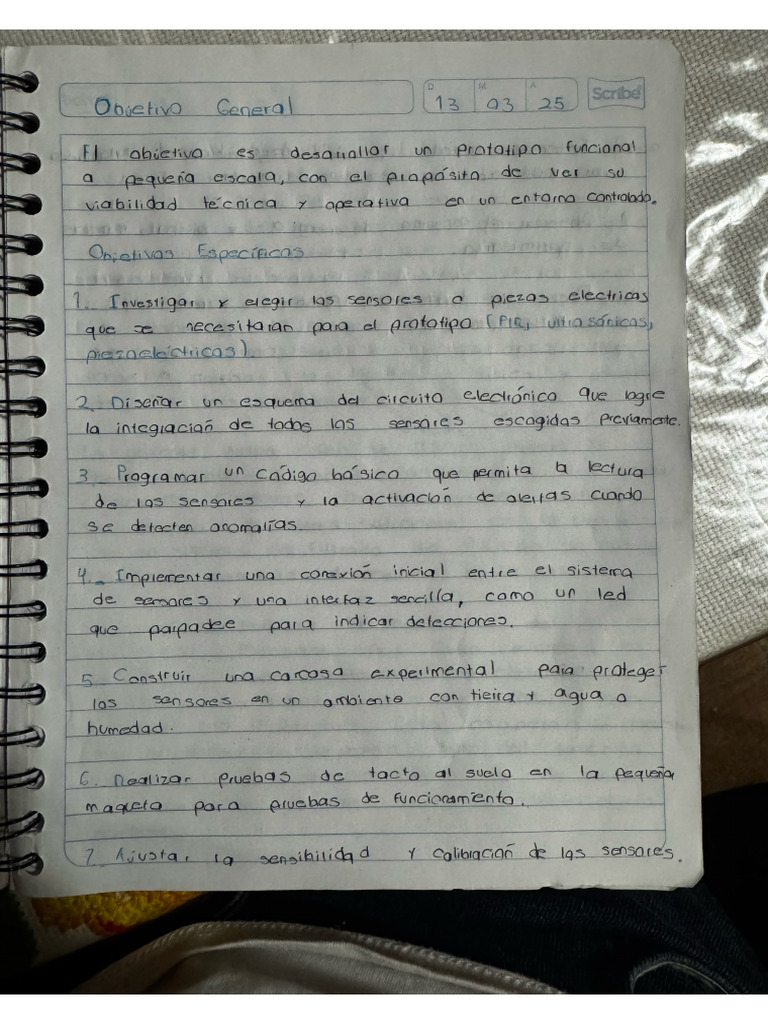 Objetivo General
D 13 M 03 A 25
Scribe
El objetivo es desarrollar un prototipo funcional
a pequeña escala, con el propósito de ver su
viabilidad técnica y operativa en un entorno controlado.
Objetivos Específicos
1. Investigar y elegir los sensores o piezas electricas
que se necesitaran para el prototipo (PIR, ultrasónicos,
piezoeléctricos).
2. Diseñar un esquema del circuito electrónico que logre
la integración de todos los sensores escogidos previamente.
3. Programar un código básico que permita la lectura
de los sensores y la activación de alertas cuando
se detecten anomalías.
4. Implementar una conexión inicial entre el sistema
de sensores y una interfaz sencilla, como un led
que parpadee para indicar detecciones.
5. Construir una carcasa experimental para proteger
los sensores en un ambiente con tierra y agua o
humedad.
6. Realizar pruebas de tacto al suelo en la pequeña
maqueta para pruebas de funcionamiento.
7. Ajustar la sensibilidad y calibración de los sensores.